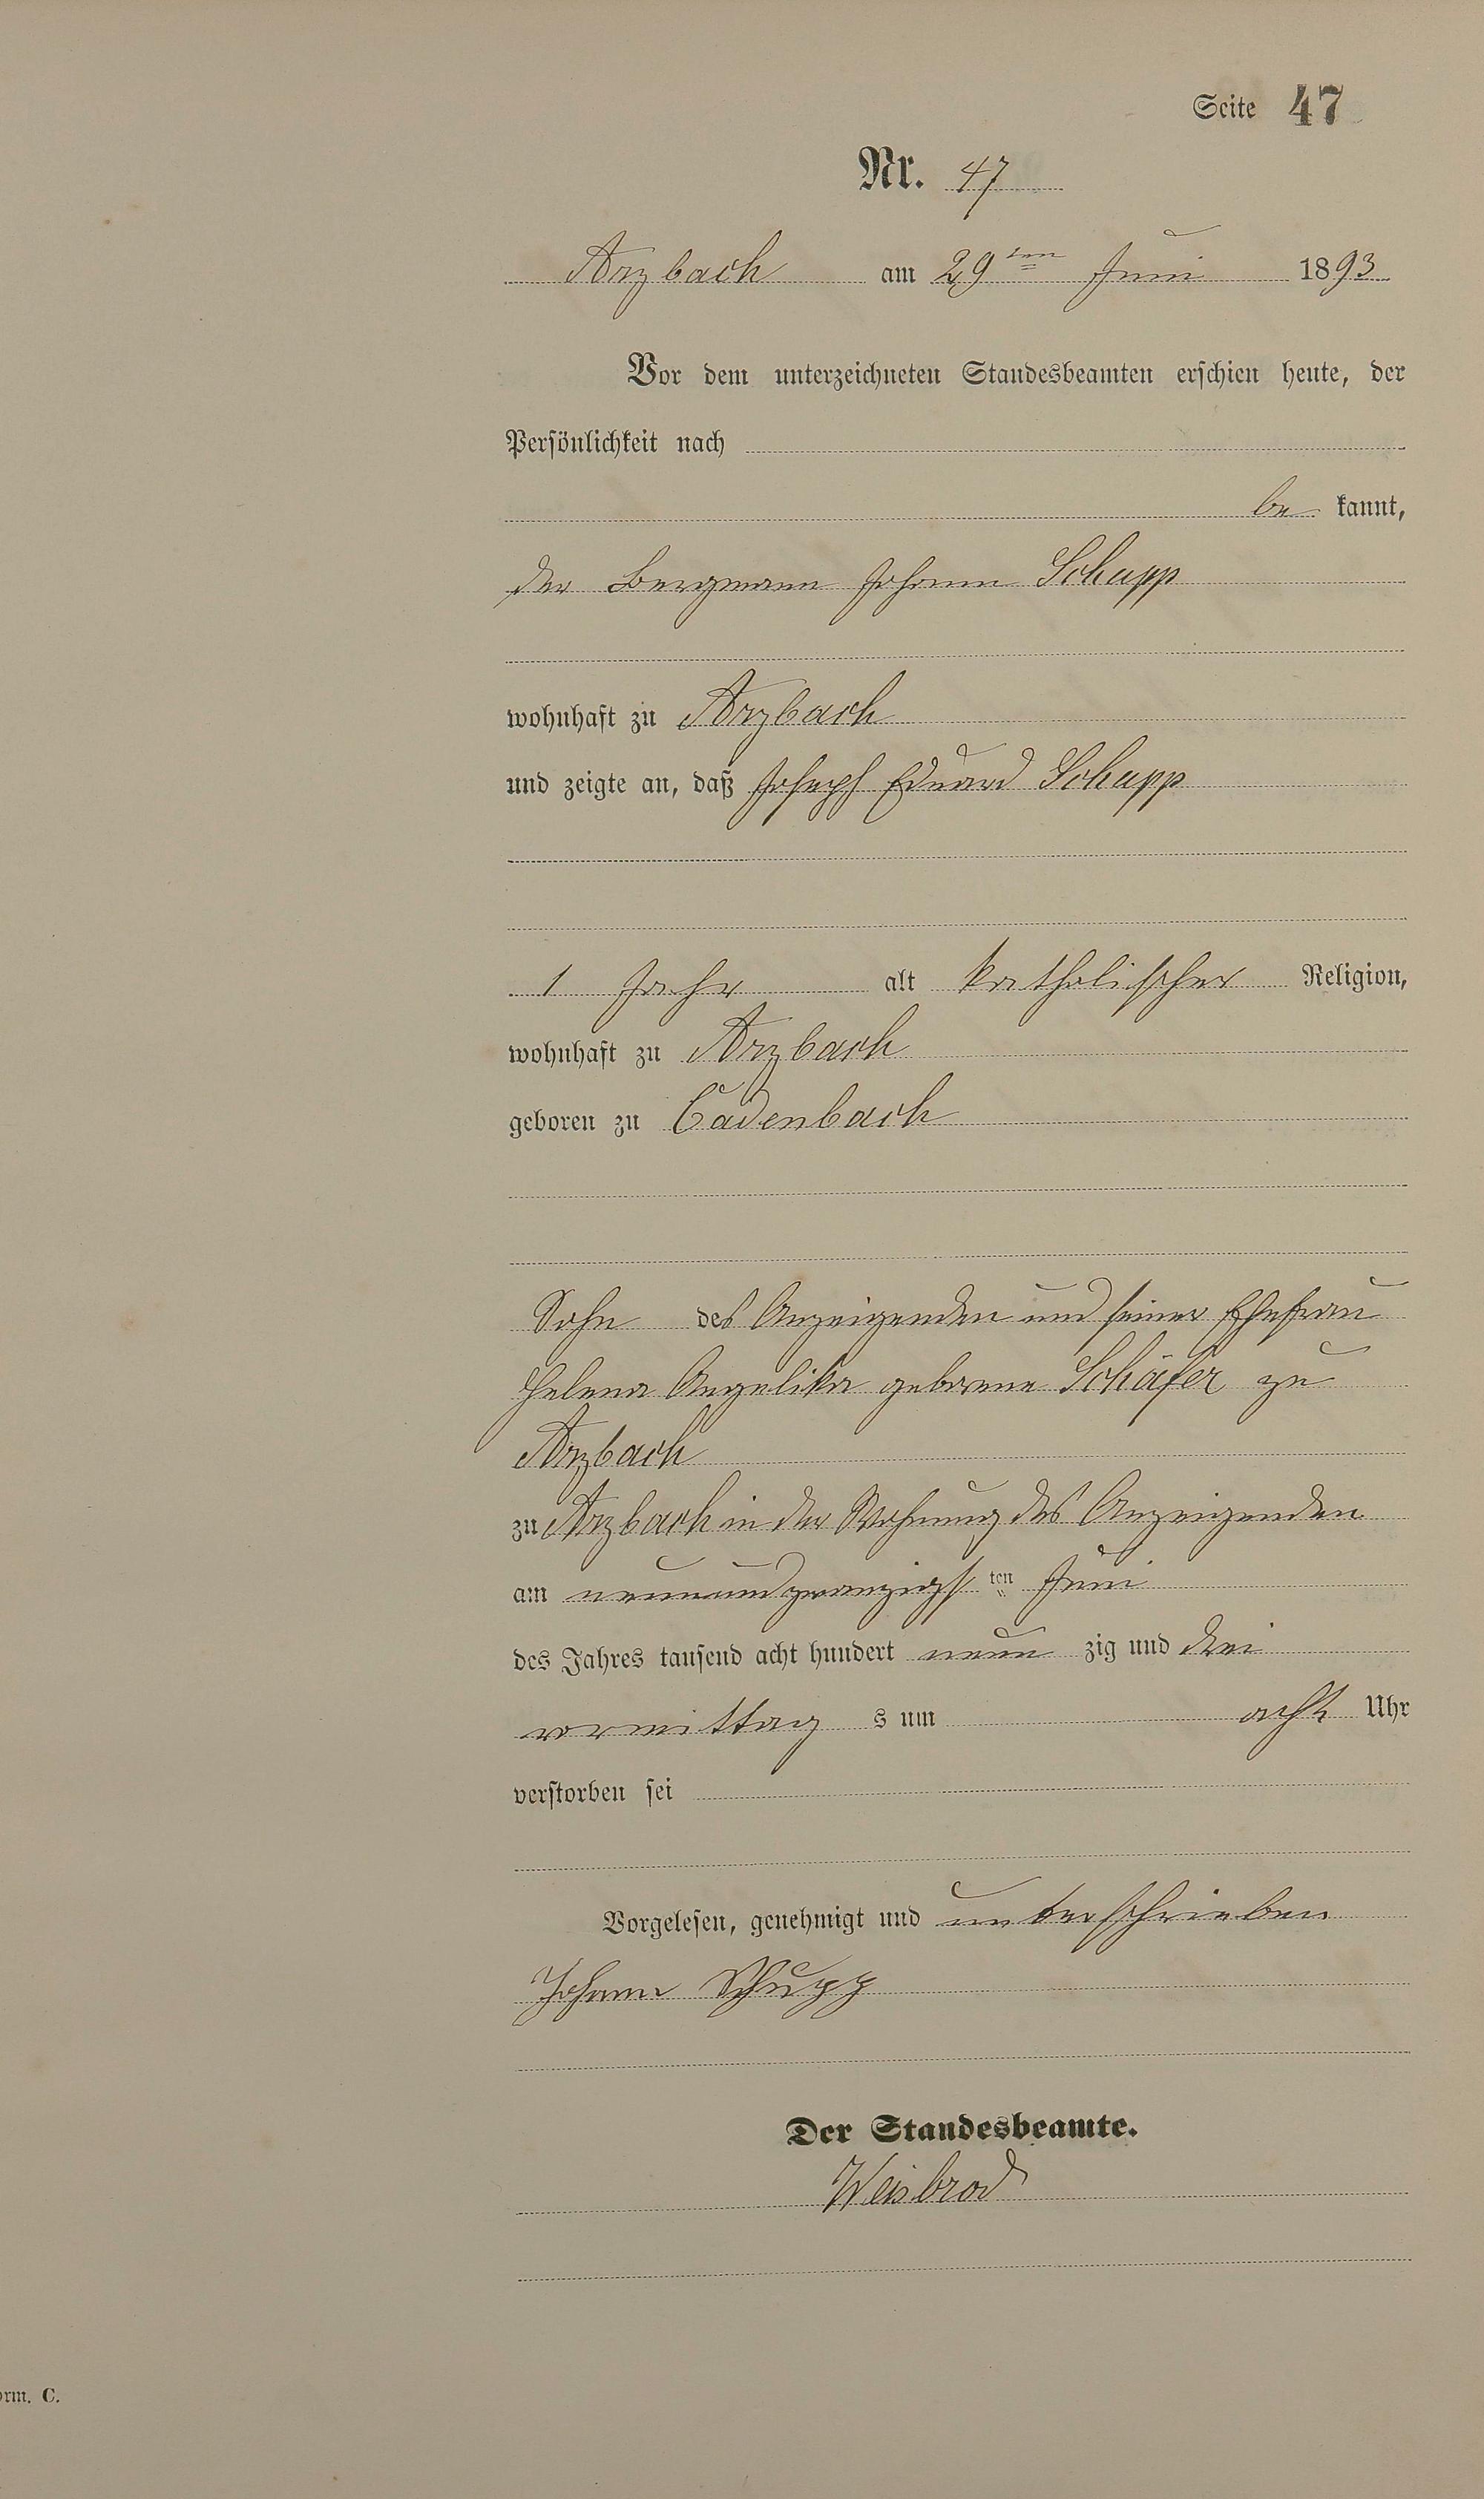 Seite 47
Nr. 47
Arzbach am 29ten Juni 1893
Vor dem unterzeichneten Standesbeamten erschien heute, der
Persönlichkeit nach
be kannt,
der Bergmann Johann Schupp
wohnhaft zu Arzbach
und zeigte an, daß Joseph Eduard Schupp
1 Jahr alt katholischer Religion,
wohnhaft zu Arzbach
geboren zu Cadenbach
Sohn des Anzeigenden und seiner Ehefrau
Helena Angelika geborene Schäfer zu
Arzbach
zu Arzbach in der Wohnung des Anzeigenden
am neunundzwanzigsten Juni
des Jahres tausend acht hundert neun zig und drei
vormittag s um acht Uhr
verstorben sei
Vorgelesen, genehmigt und unterschrieben
Johann Schupp
Der Standesbeamte.
Weisbrod
orm. C.